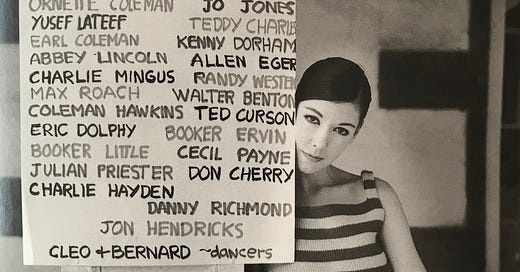 ORNETTE COLEMAN JO JONES
YUSEF LATEEF TEDDY CHARLES
EARL COLEMAN KENNY DORHAM
ABBEY LINCOLN ALLEN EGER
CHARLIE MINGUS RANDY WESTEN
MAX ROACH WALTER BENTON
COLEMAN HAWKINS TED CURSON
ERIC DOLPHY BOOKER ERVIN
BOOKER LITTLE CECIL PAYNE
JULIAN PRIESTER DON CHERRY
CHARLIE HAYDEN
DANNY RICHMOND
JON HENDRICKS
CLEO + BERNARD ~dancers